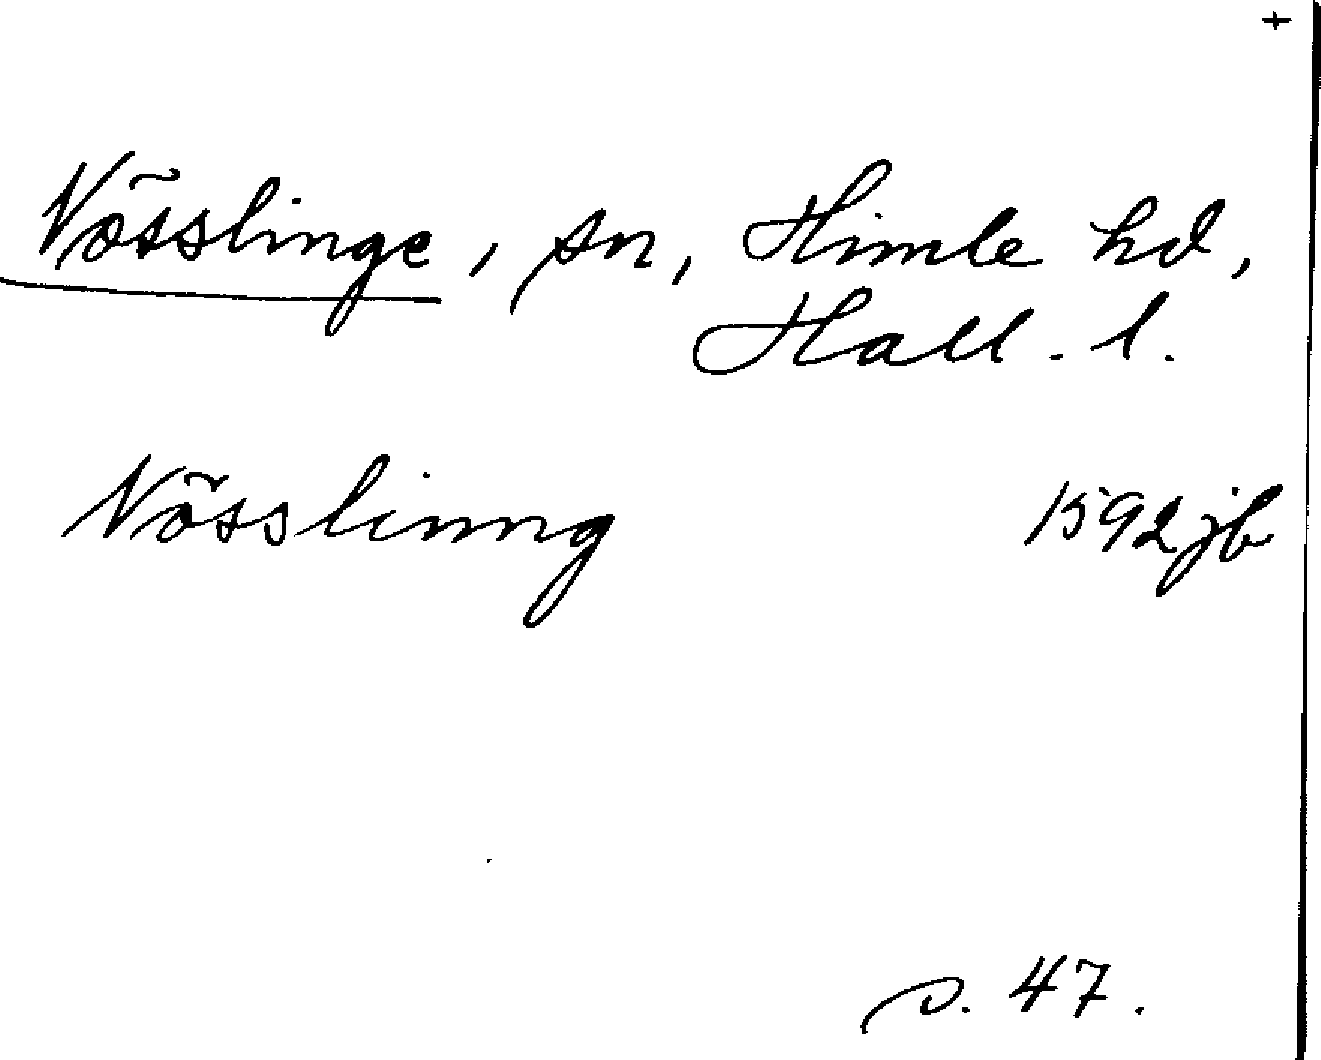 +
Nösslinge, sn, Himle hd,
Hall. l.
Nösslinng 1592 jb
s. 47.